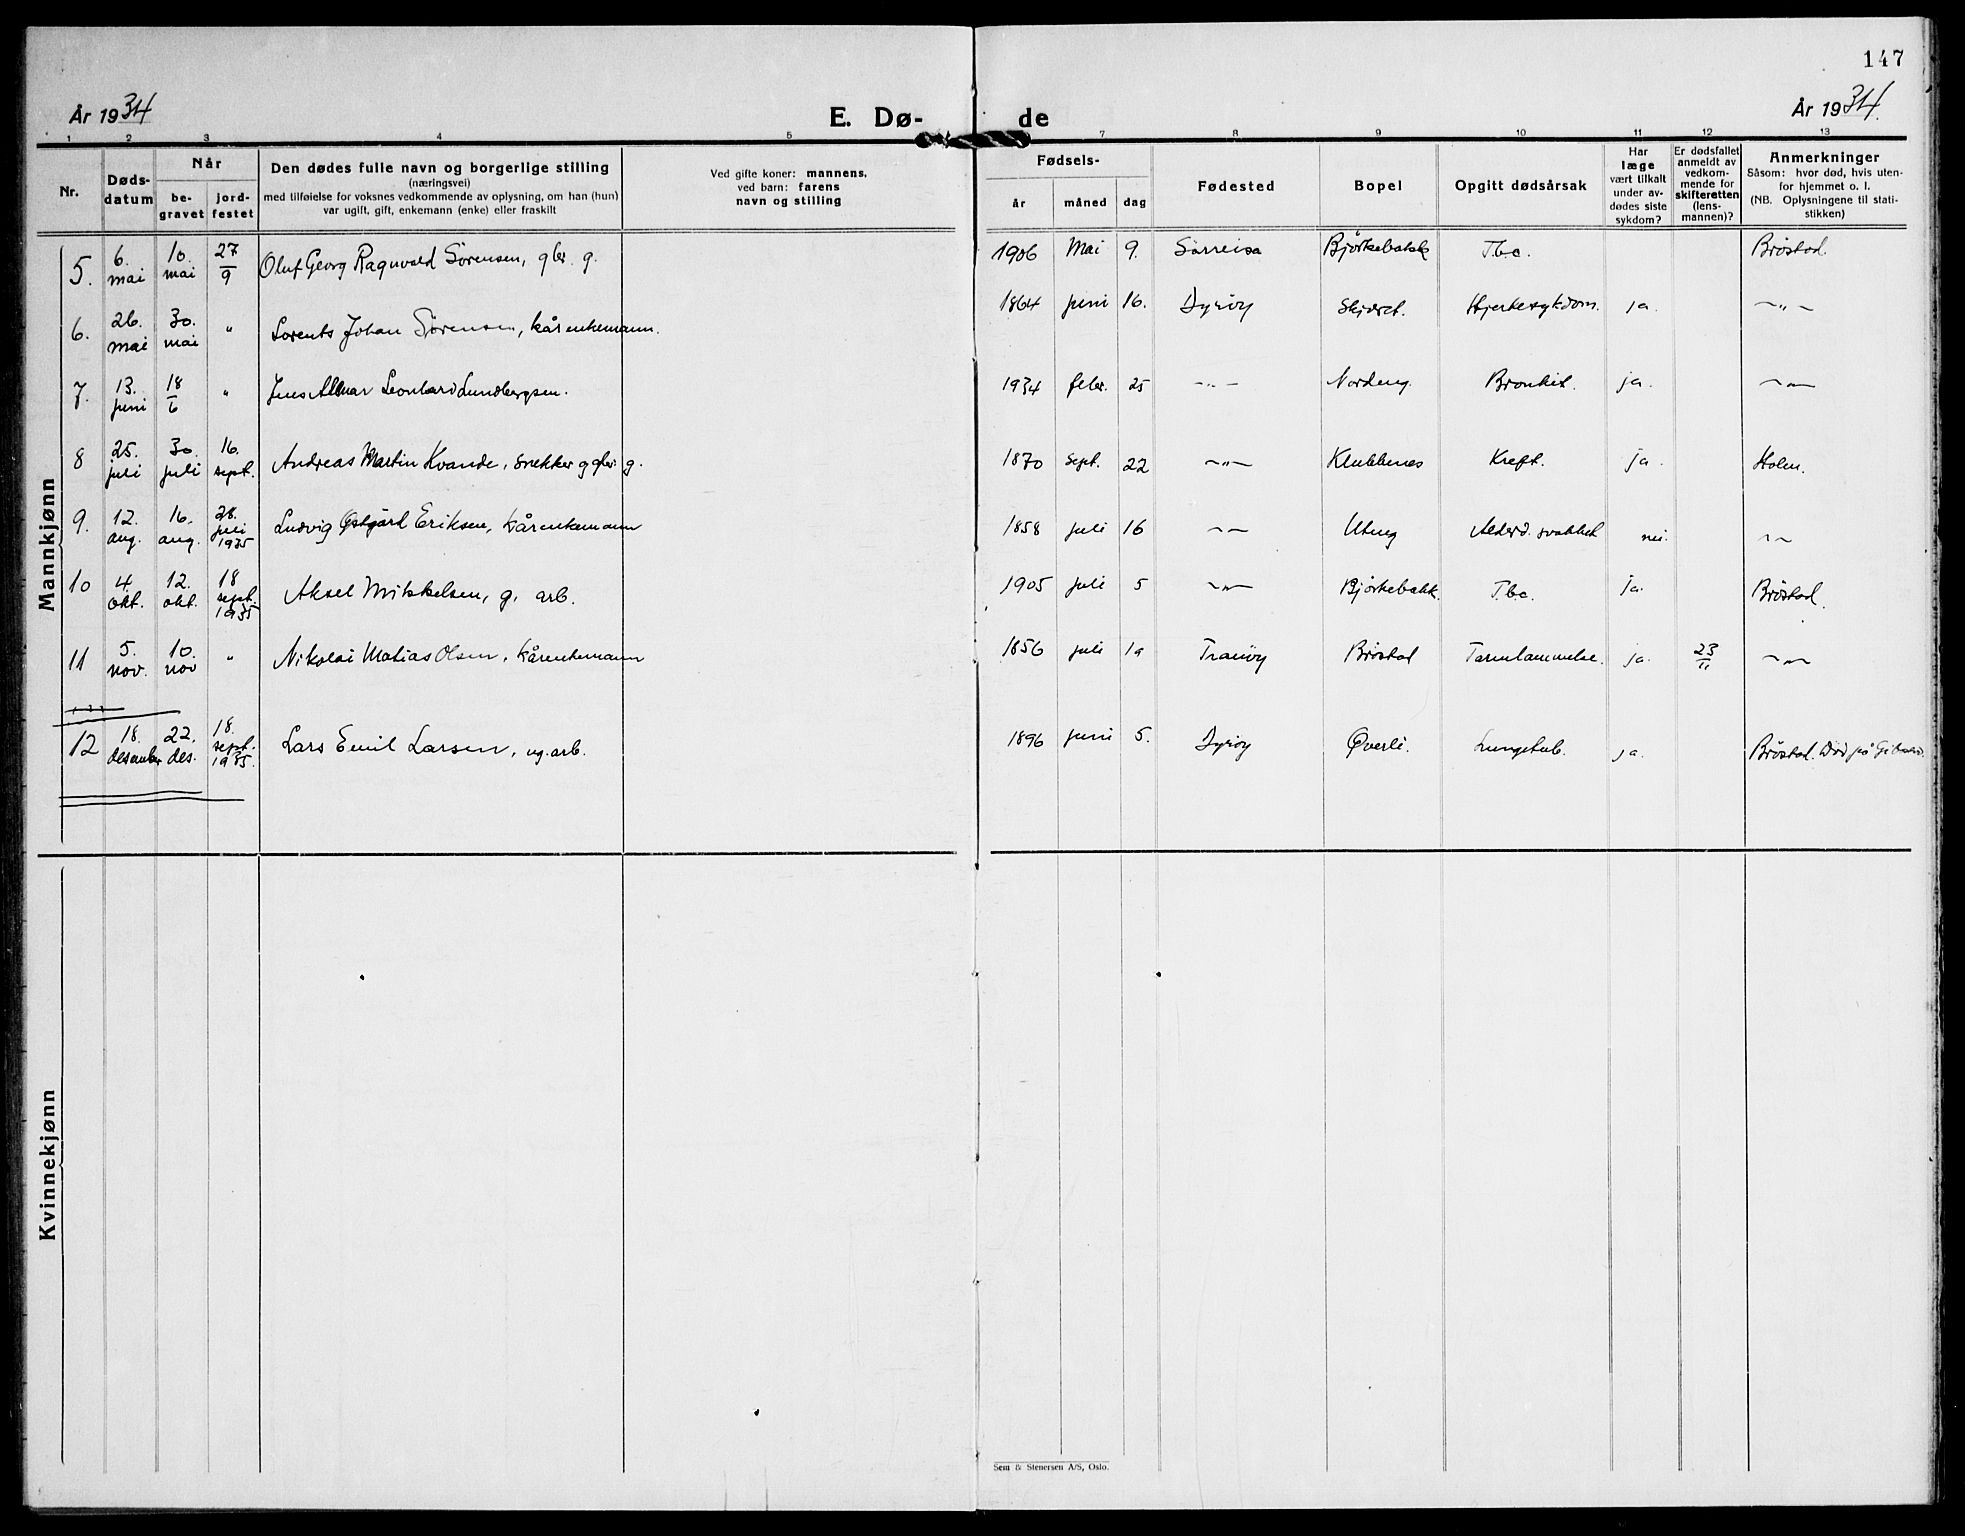 147
År 1934
E. Dø-
de
År 1934.
1 2 3 4 5 7 8 9 10 11 12 13
Nr.
Døds-
datum
Når
be-
gravet
jord-
festet
Den dødes fulle navn og borgerlige stilling
(næringsvei)
med tilføielse for voksnes vedkommende av oplysning, om han (hun)
var ugift, gift, enkemann (enke) eller fraskilt
Ved gifte koner: mannens,
ved barn: farens
navn og stilling
Fødsels-
år måned dag
Fødested
Bopel
Opgitt dødsårsak
Har
læge
vært tilkalt
under av-
dødes siste
sykdom?
Er dødsfallet
anmeldt av
vedkom-
mende for
skifteretten
(lens-
mannen)?
Anmerkninger
Såsom: hvor død, hvis uten-
for hjemmet o. l.
(NB. Oplysningene til stati-
stikken)
Mannkjønn
5. 6. mai 10. mai 27/9 Oluf Georg Ragnvald Sørensen, gbr. g. 1906 Mai 9. Sørreisa Bjørkebakk T.b.c. Brøstad.
6. 26. mai 30. mai " Lorents Johan Sørensen, kårenkemann. 1864 juni 16. Dyrøy Skjæret. Hjertesykdom. ja. -"-
7. 13. juni 18/6 " Jens Leonhard Lundbergsen. 1934 febr. 25 -"- Nordeng. Bronkit. ja. -"-
8 25. juli 30. juli 16. sept. Andreas Martin Kvande, snekker og gbr. g. 1870 sept. 22 -"- Klubbenes Kreft. ja. Holm.
9. 12. aug. 16. aug. 28. juli 1935 Ludvig Østgård Eriksen, kårenkemann 1858 juli 16 -"- Uteng Alderd. svakhet nei. -"-
10 4. okt. 12. okt. 18 sept. 1935 Aksel Mikkelsen, g. arb. 1905 juli 5 -"- Bjørkebakk. T.b.c. ja. Brøstad.
11 5. nov. 10. nov " Nikolai Matias Olsen, kårenkemann 1856 juli 19 Tranøy Brøstad Tarmlammelse. ja. 23/11 -"-
12 18. desember 22. des. 18. sept. 1935. Lars Emil Larsen, ug. arb. 1896 juni 5. Dyrøy Øverli. Lungetub. ja. Brøstad. Død på Gibostad.
Kvinnekjønn
Sem & Stenersen A/S, Oslo.